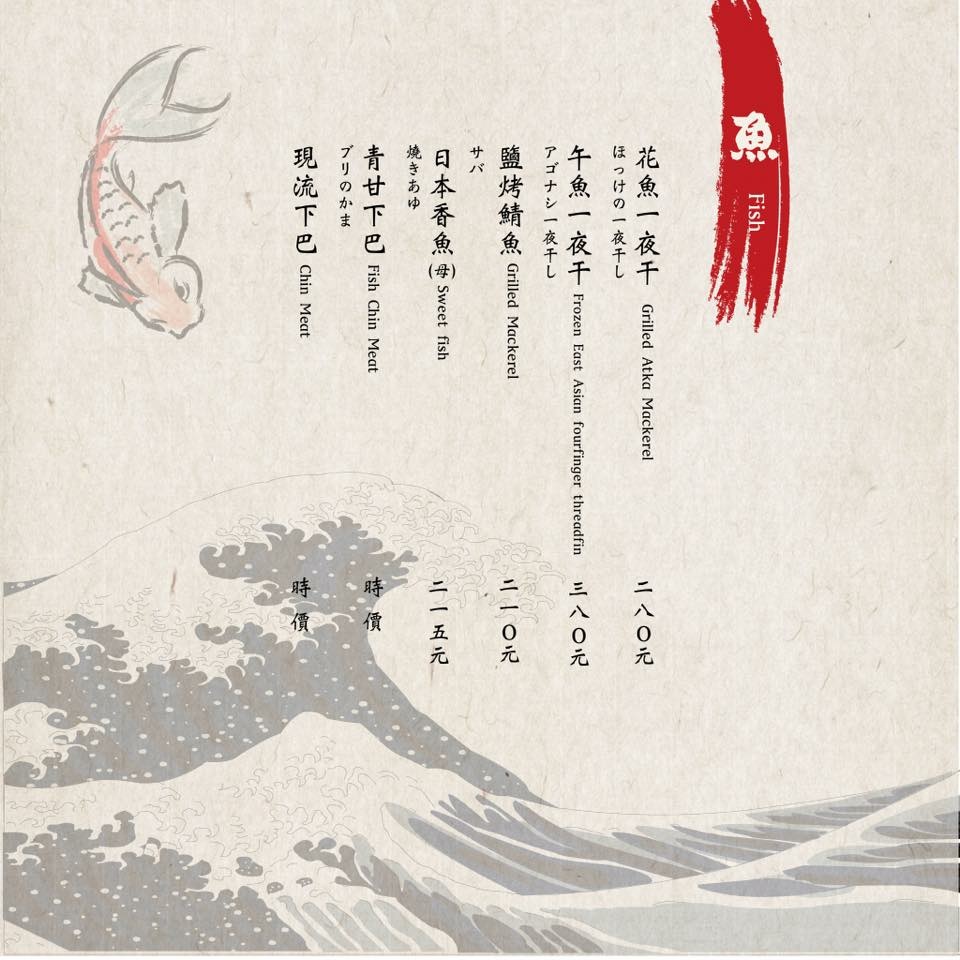 魚 Fish
花魚一夜干 Grilled Atka Mackerel 二八〇元
ほっけの一夜干し
午魚一夜干 Frozen East Asian fourfinger threadfin 三八〇元
アゴナシ一夜干し
鹽烤鯖魚 Grilled Mackerel 二一〇元
サバ
日本香魚(母) Sweet fish 二一五元
燒きあゆ
青甘下巴 Fish Chin Meat 時價
ブリのかま
現流下巴 Chin Meat 時價